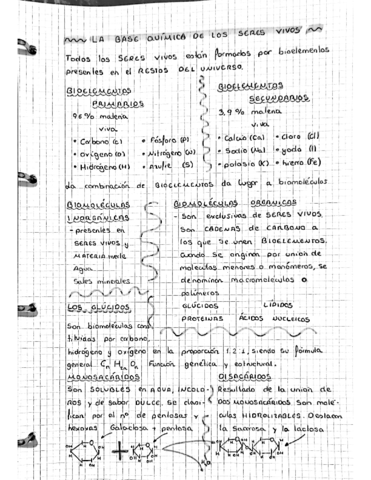 LA BASE QUÍMICA DE LOS SERES VIVOS
Todos los SERES VIVOS están formados por bioelementos
presentes en el RESTOS DEL UNIVERSO.
BIOELEMENTOS
PRIMARIOS
96% materia
viva
• Carbono (C) • Fósforo (P)
• Oxígeno (O) • Nitrógeno (N)
• Hidrógeno (H) • Azufre (S)
BIOELEMENTOS
SECUNDARIOS
3,9% materia
viva
• Calcio (Ca) • Cloro (Cl)
• Sodio (Na) • yodo (I)
• potasio (K) • hierro (Fe)
La combinación de BIOELEMENTOS da lugar a biomoléculas
BIOMOLÉCULAS
INORGÁNICAS
- presentes en
SERES VIVOS y
MATERIA inerte
Agua
Sales minerales
BIOMOLÉCULAS ORGÁNICAS
- Son exclusivas de SERES VIVOS
Son CADENAS de CARBONO a
los que se unen BIOELEMENTOS.
Cuando se originan por union de
moleculas menores o monómeros, se
denominan macromoléculas o
polímeros
GLÚCIDOS LÍPIDOS
PROTEINAS ÁCIDOS NUCLEICOS
LOS GLÚCIDOS
Son biomoléculas cons-
tituidas por carbono,
hidrógeno y oxígeno en la proporción 1:2:1, siendo su fórmula
general Cn H2n On Función genética y estructural.
MONOSACÁRIDOS
SON SOLUBLES en AGUA, INCOLO-
ROS y de sabor DULCE, se clasi-
fican por el nº de pentosas y
hexosas Galactosa + pentosa
DISACÁRIDOS
Resultado de la union de
DOS MONOSACÁRIDOS Son molé-
culas HIDROLIZABLES. Destacan
la sacarosa y la lactosa